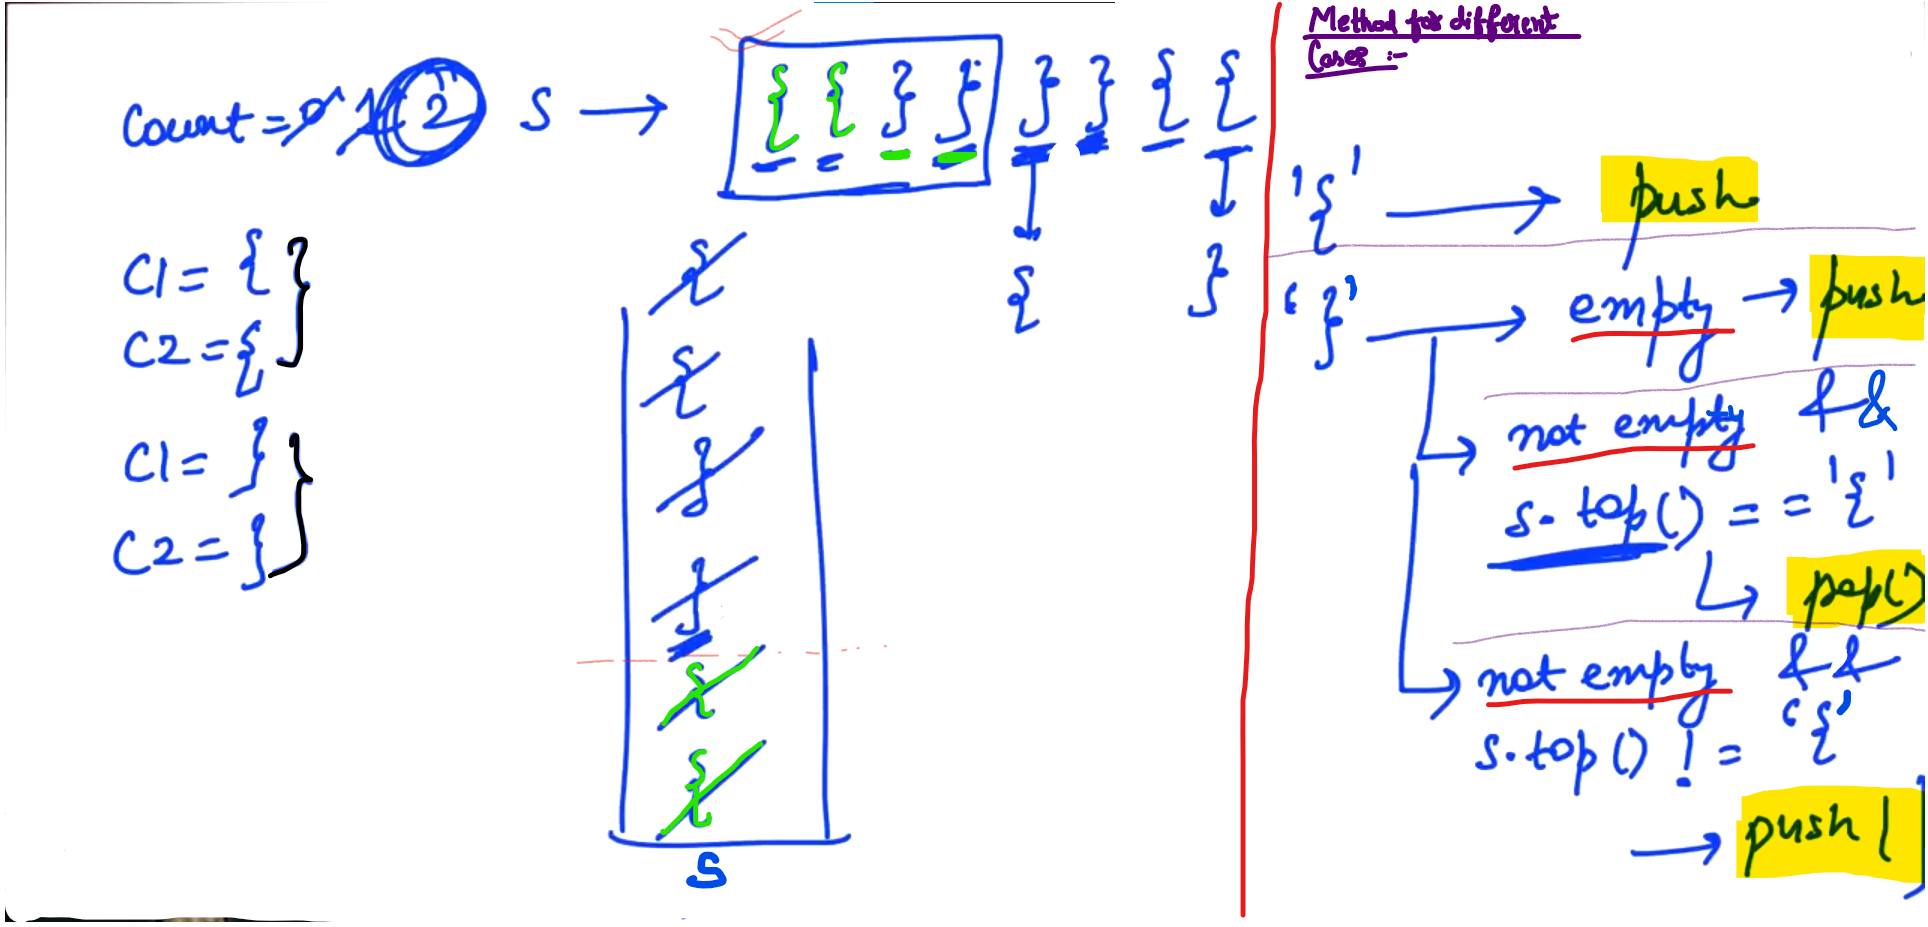 Count = 0 1 2
S → { { } } } } { {
{ }
C1 = {
C2 = {
C1 = }
C2 = }
{
{
}
}
{
{
S
Method for different
Cases :-
'{' → push
'}' → empty → push
not empty &&
s.top() == '{'
pop()
not empty &&
s.top() != '{'
→ push()